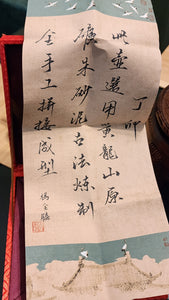 丁卯
此壺選用黃龍山原
礦朱砂泥古法煉制
全手工拼接成型